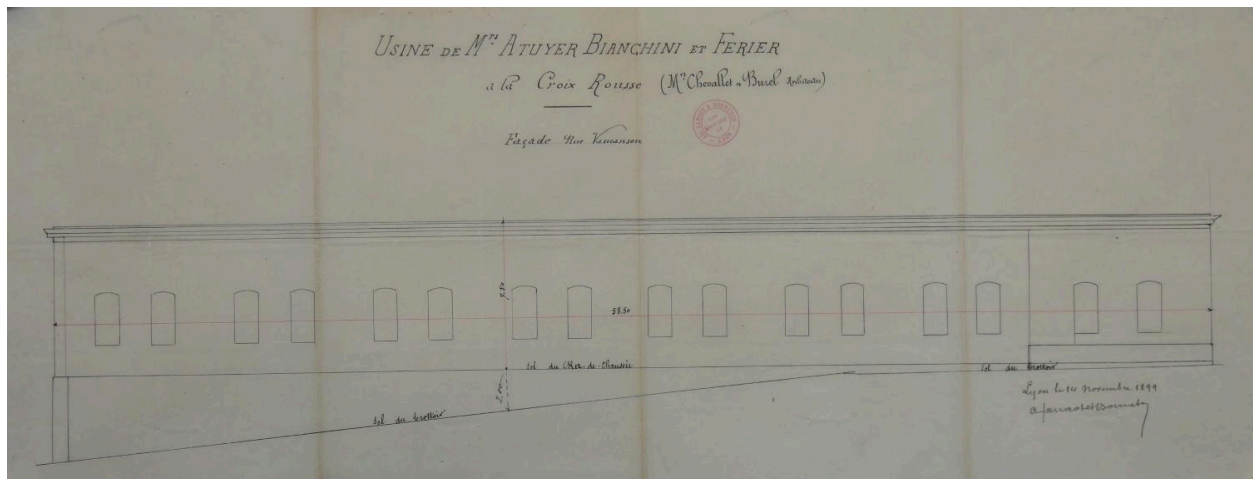 USINE DE Mrs ATUYER BIANCHINI ET FERIER
à la Croix Rousse (Mrs Chevallet & Burel Architectes)
Façade Rue Vaucanson
58.50
Sol du Rez-de-Chaussée
Sol du trottoir
2.00
Sol du trottoir
Lyon le 14 Novembre 1899